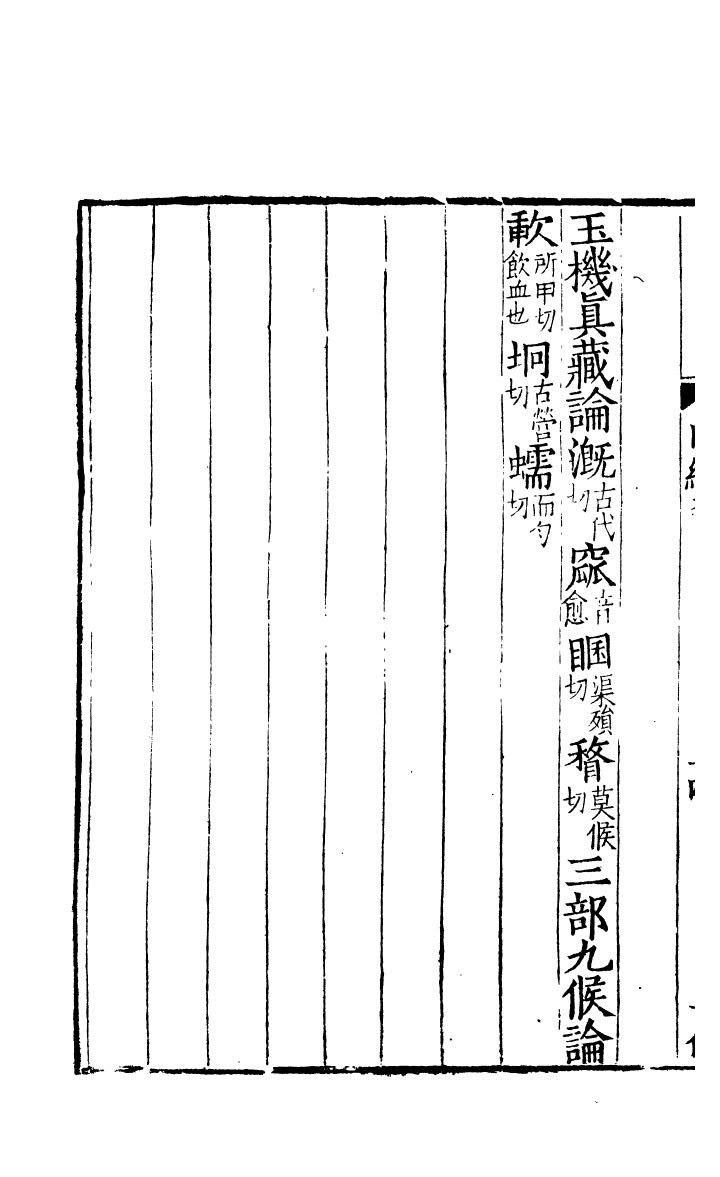 玉機眞藏論溉古代切窳音愈䐃渠殞切瞀莫候切三部九候論
㰱所甲切飲血也坰古營切蠕而勻切